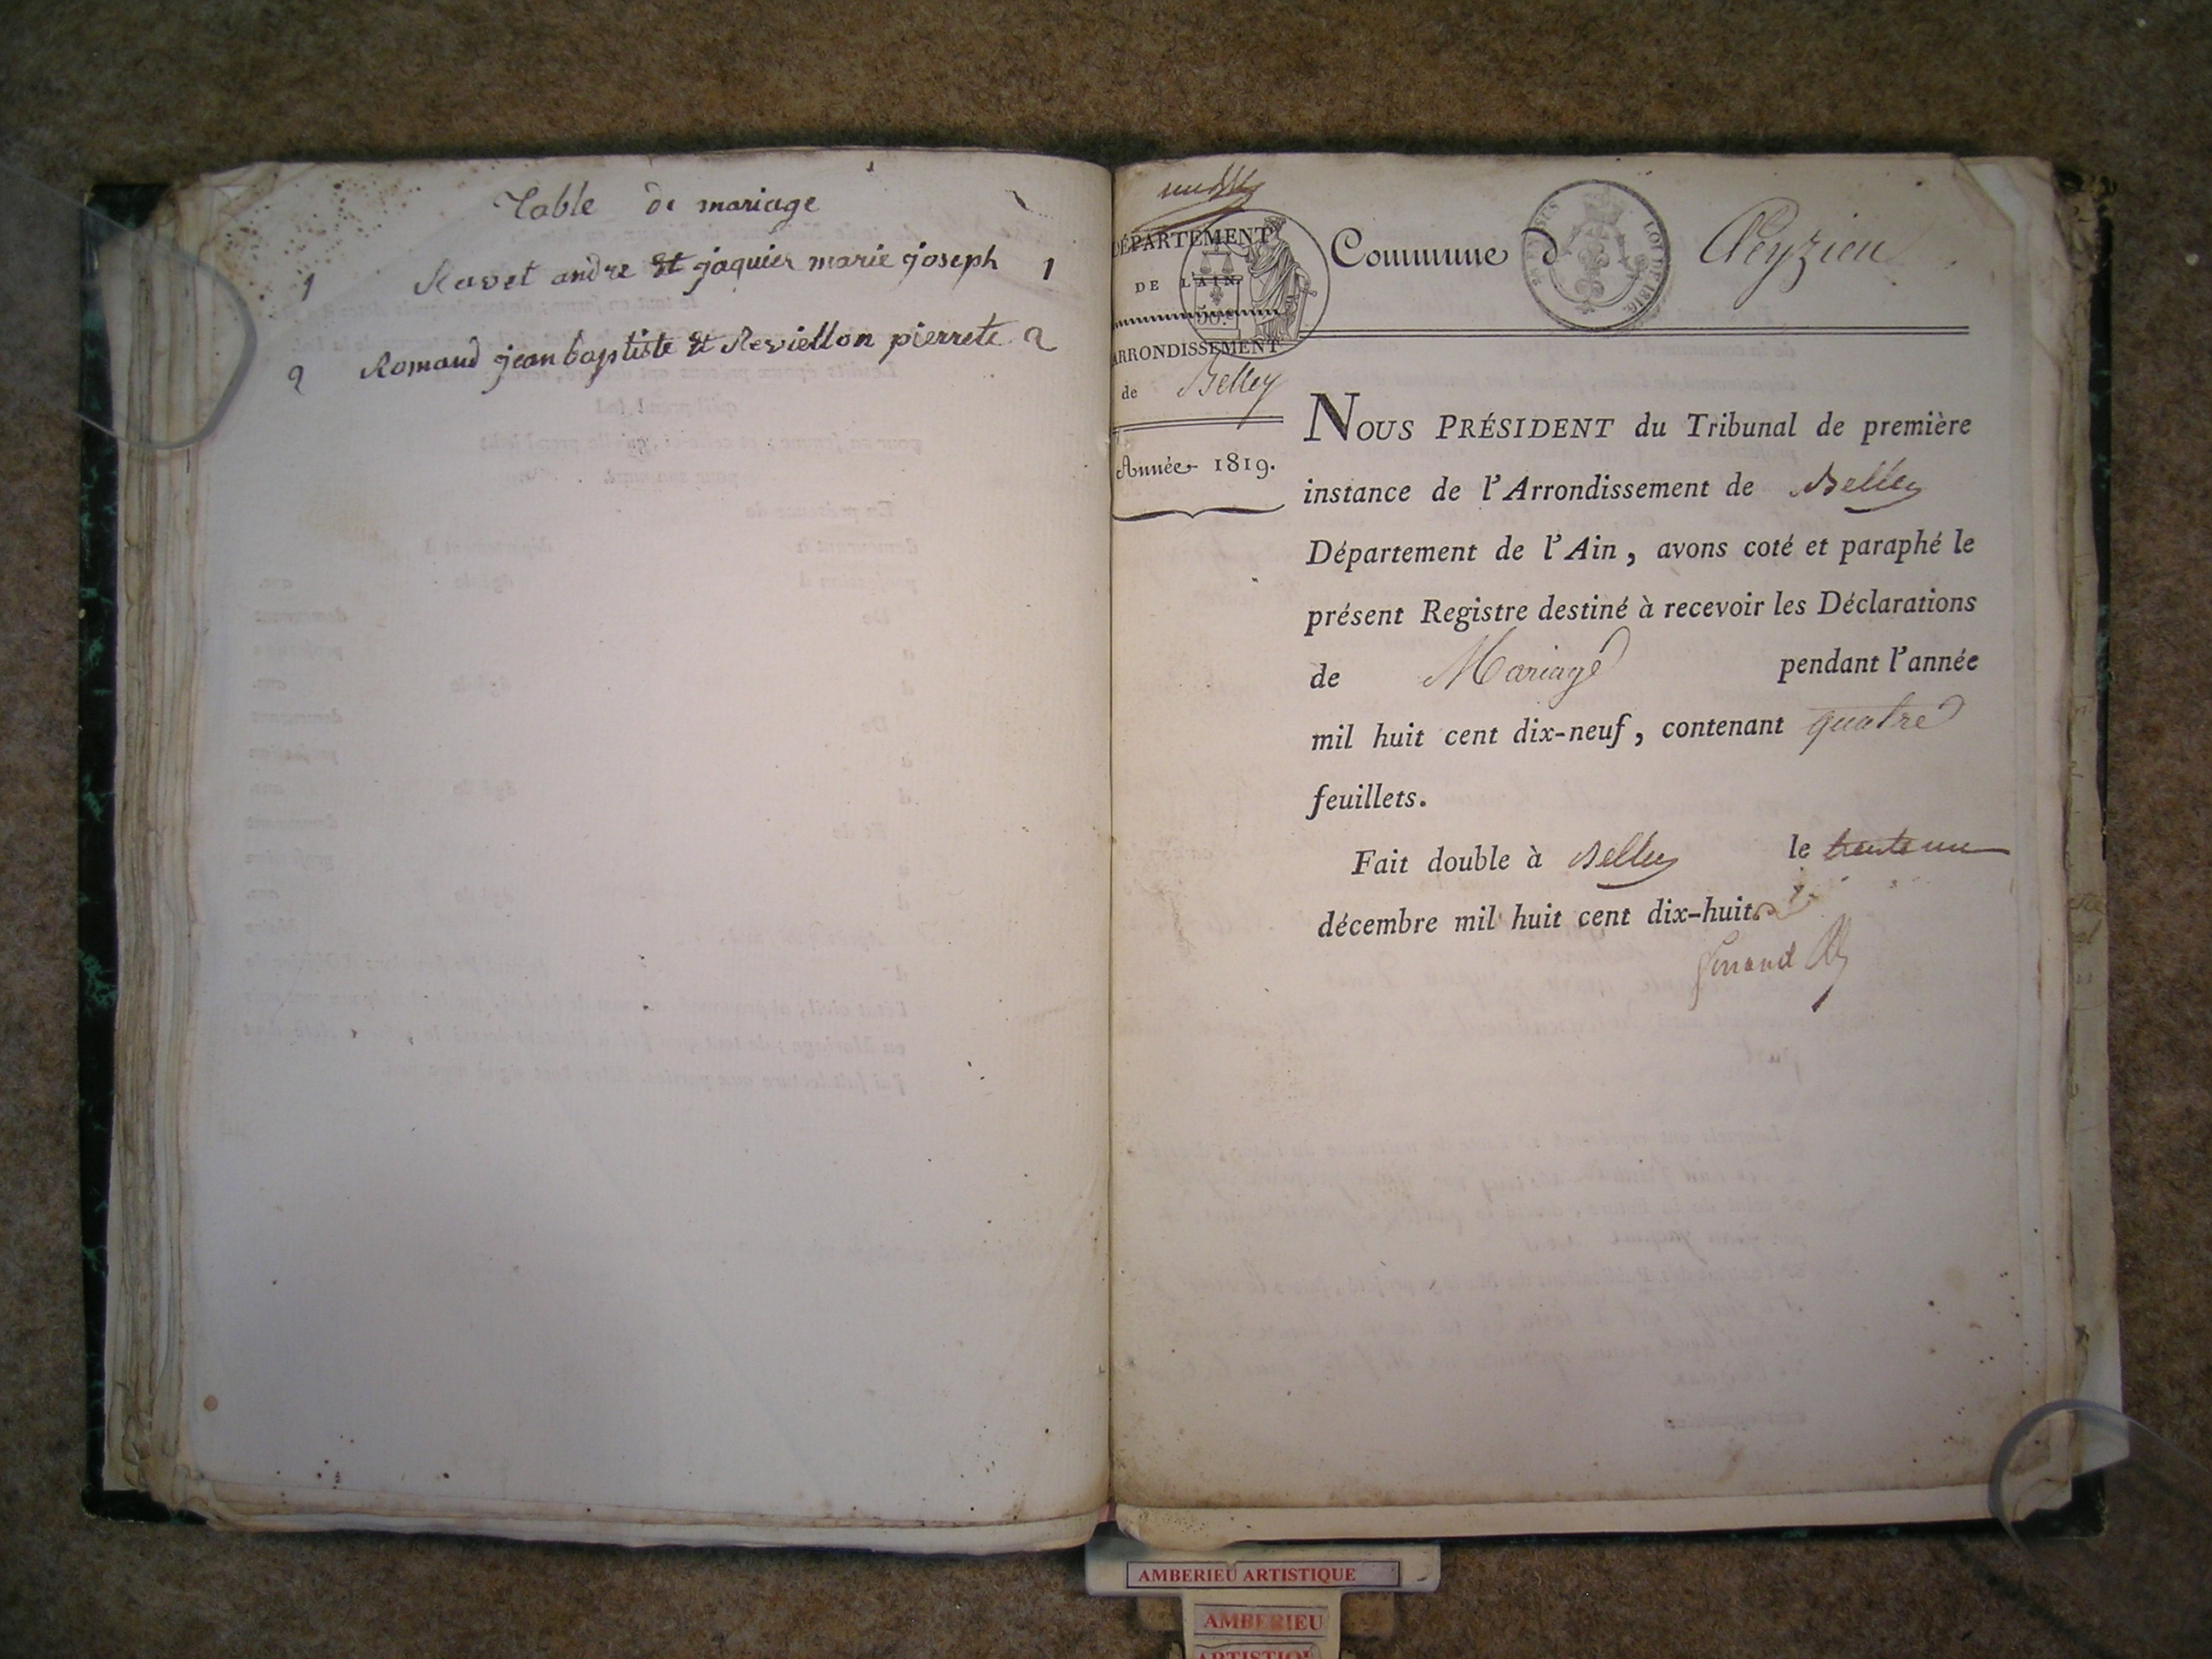 Table de mariage
1 Ravet andre et jaquier marie joseph 1
2 Romand jean baptiste et Reviellon pierrete 2
DÉPARTEMENT
DE L'AIN.
ARRONDISSEMENT
de Belley
Année 1819.
Commune d
LOI DE 1816.
NOUS PRÉSIDENT du Tribunal de première
instance de l'Arrondissement de Belley
Département de l'Ain, avons coté et paraphé le
présent Registre destiné à recevoir les Déclarations
de Mariage pendant l'année
mil huit cent dix-neuf, contenant quatre
feuillets.
Fait double à Belley le trente un
décembre mil huit cent dix-huit.
AMBERIEU ARTISTIQUE
AMBERIEU
ARTISTIQUE